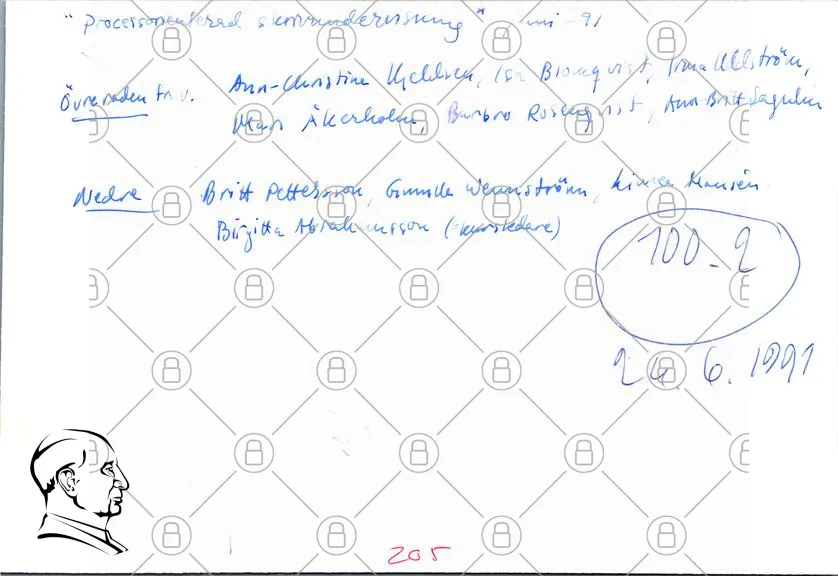 "Processorienterad skrivundervisning" juni -91
Övre raden fr. v. Ann-Christine Kjeldsen, Isa Blomqvist, Irma Ullström,
Mari Åkerholm, Barbro Rosenqvist, Ann-Britt Sagulin
Nedre Britt Pettersson, Gunilla Wennström, Linnea Hansén
Birgitta Abrahamsson (=kursledare)
100-2
24.6.1991
205